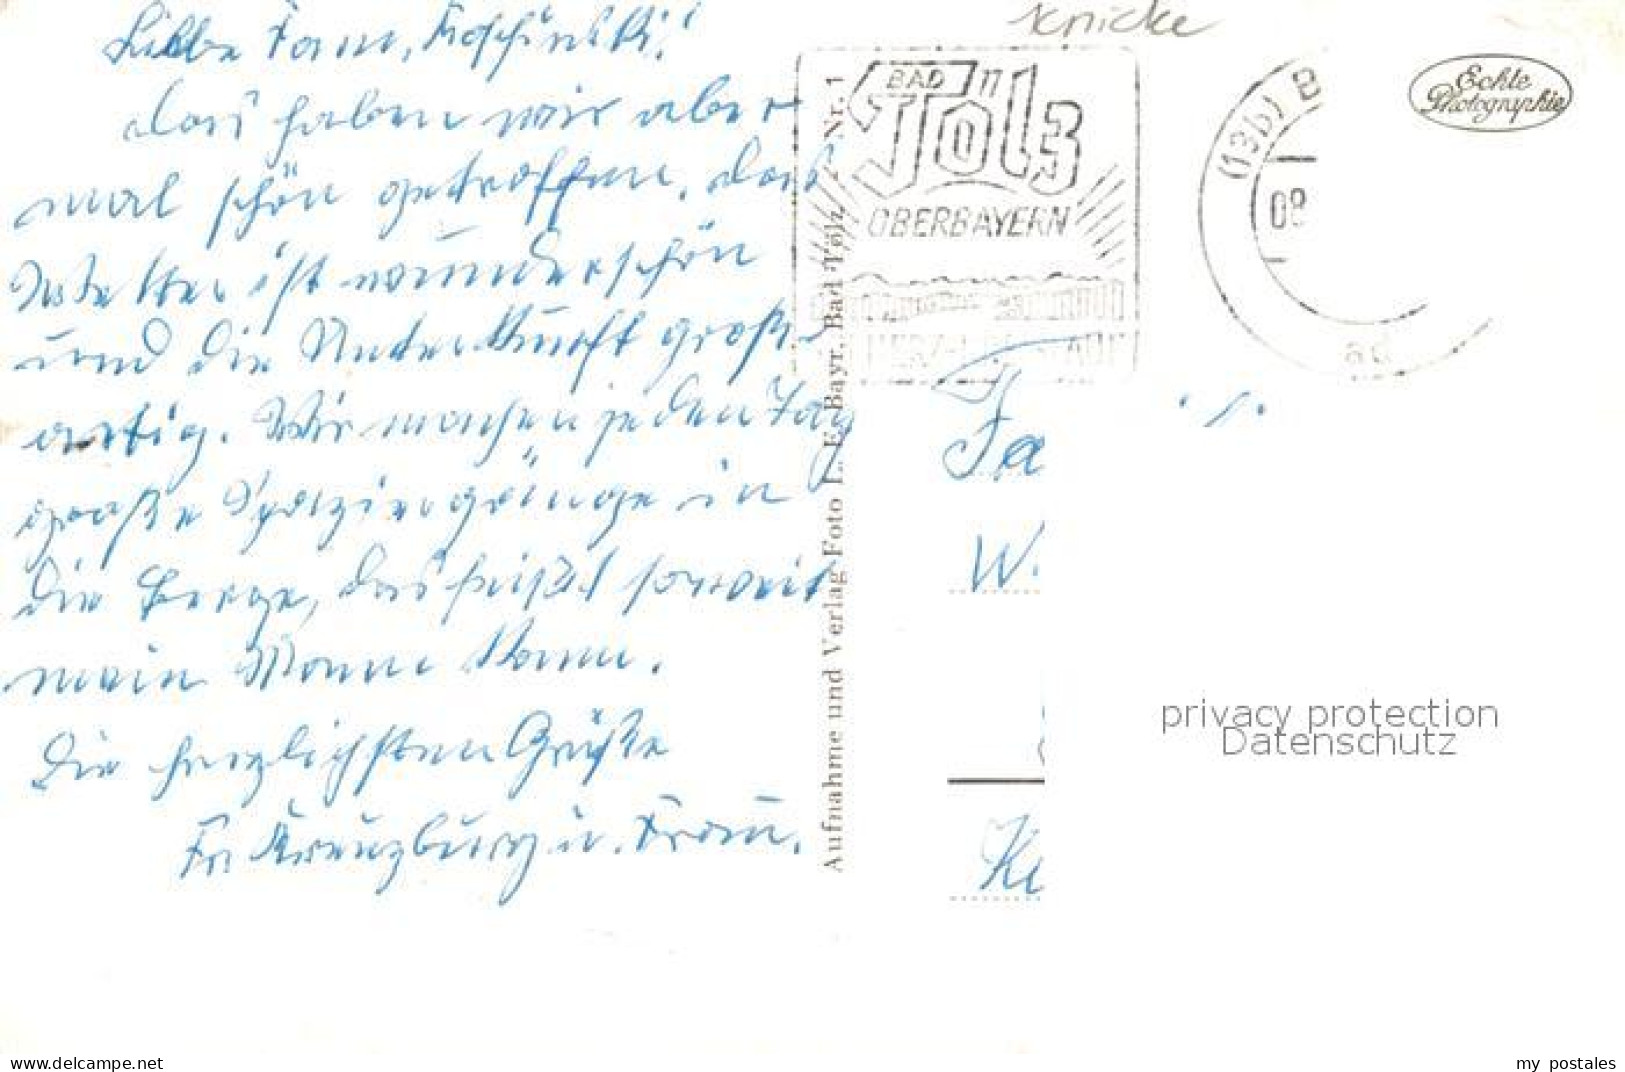 Liebe Fam. Koschinski!
das haben wir aber
mal schön getroffen, das
Wetter ist wunderschön
und die Unterkunft groß-
artig. Wir machen jeden Tag
große Spaziergänge in
die Berge, das heißt soweit
mein Mann kann.
Die herzlichsten Grüße
Fr. Kreuzburg u. Frau.
Knicke
BAD
Tölz
OBERBAYERN
Aufnahme und Verlag Foto L. E. Bayr, Bad Tölz, Nr. 1
(13b) B
08
ad
Echte
Photographie
Fa
W.
privacy protection
Datenschutz
delcampe.net
my postales